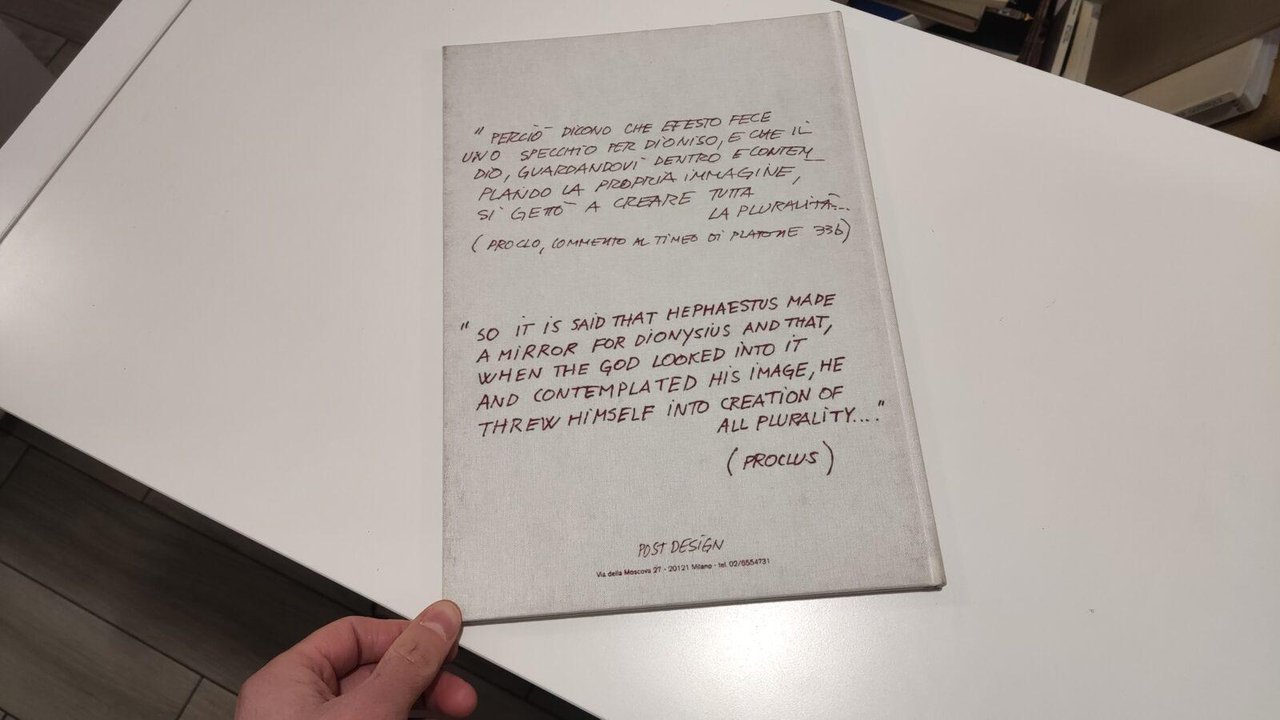 " PERCIÒ DICONO CHE EFESTO FECE
UNO SPECCHIO PER DIONISO, E CHE IL
DIO, GUARDANDOVI DENTRO E CONTEM_
PLANDO LA PROPRIA IMMAGINE,
SI GETTÒ A CREARE TUTTA
LA PLURALITÀ...
(PROCLO, COMMENTO AL TIMEO DI PLATONE 33b)
" SO IT IS SAID THAT HEPHAESTUS MADE
A MIRROR FOR DIONYSIUS AND THAT,
WHEN THE GOD LOOKED INTO IT
AND CONTEMPLATED HIS IMAGE, HE
THREW HIMSELF INTO CREATION OF
ALL PLURALITY...."
(PROCLUS)
POST DESIGN
Via della Moscova 27 - 20121 Milano - tel. 02/6554731